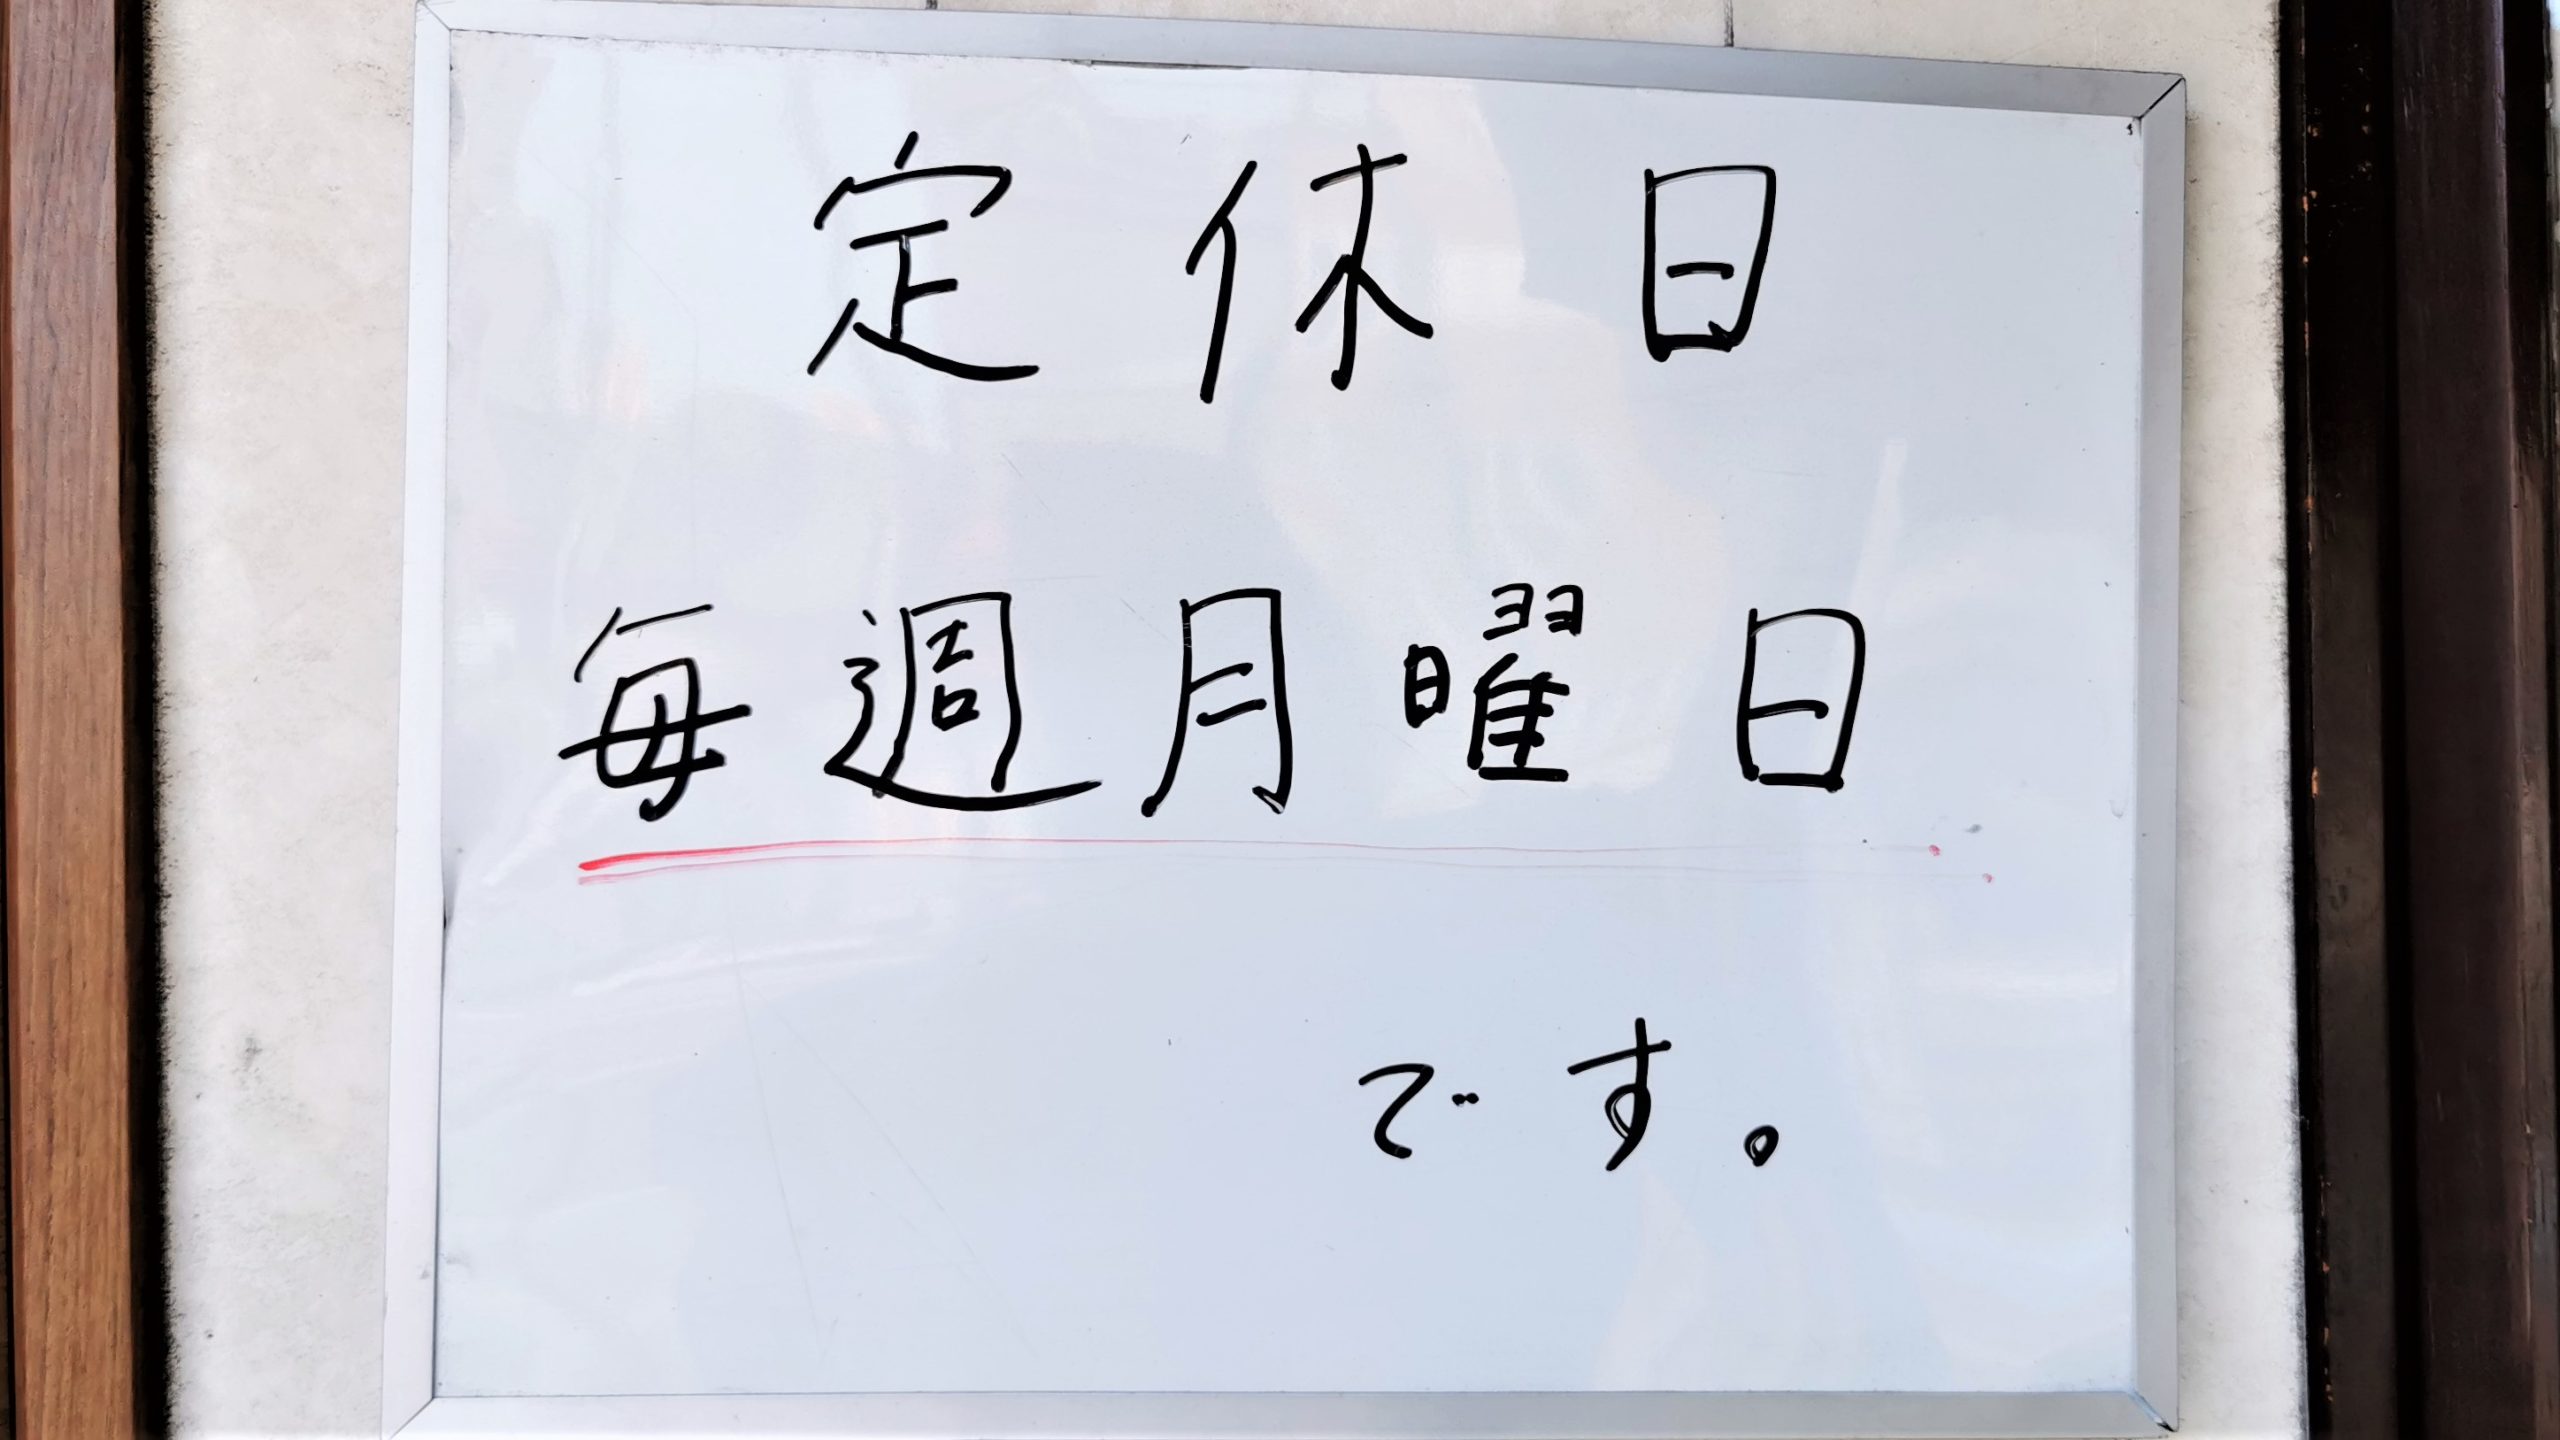 定休日
毎週月曜日
です。